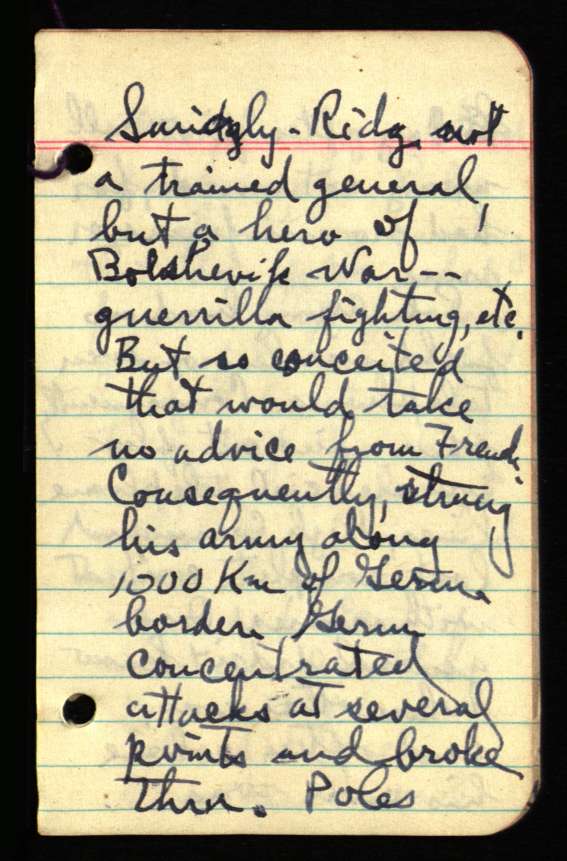 Smidgly-Ridz not
a trained general,
but a hero of
Bolshevik War--
guerrilla fighting, etc.
But so conceited
that would take
no advice from French.
Consequently, strung
his army along
1000 Km of Germ.
border. Germ
concentrated
attacks at several
points and broke
thru. Poles